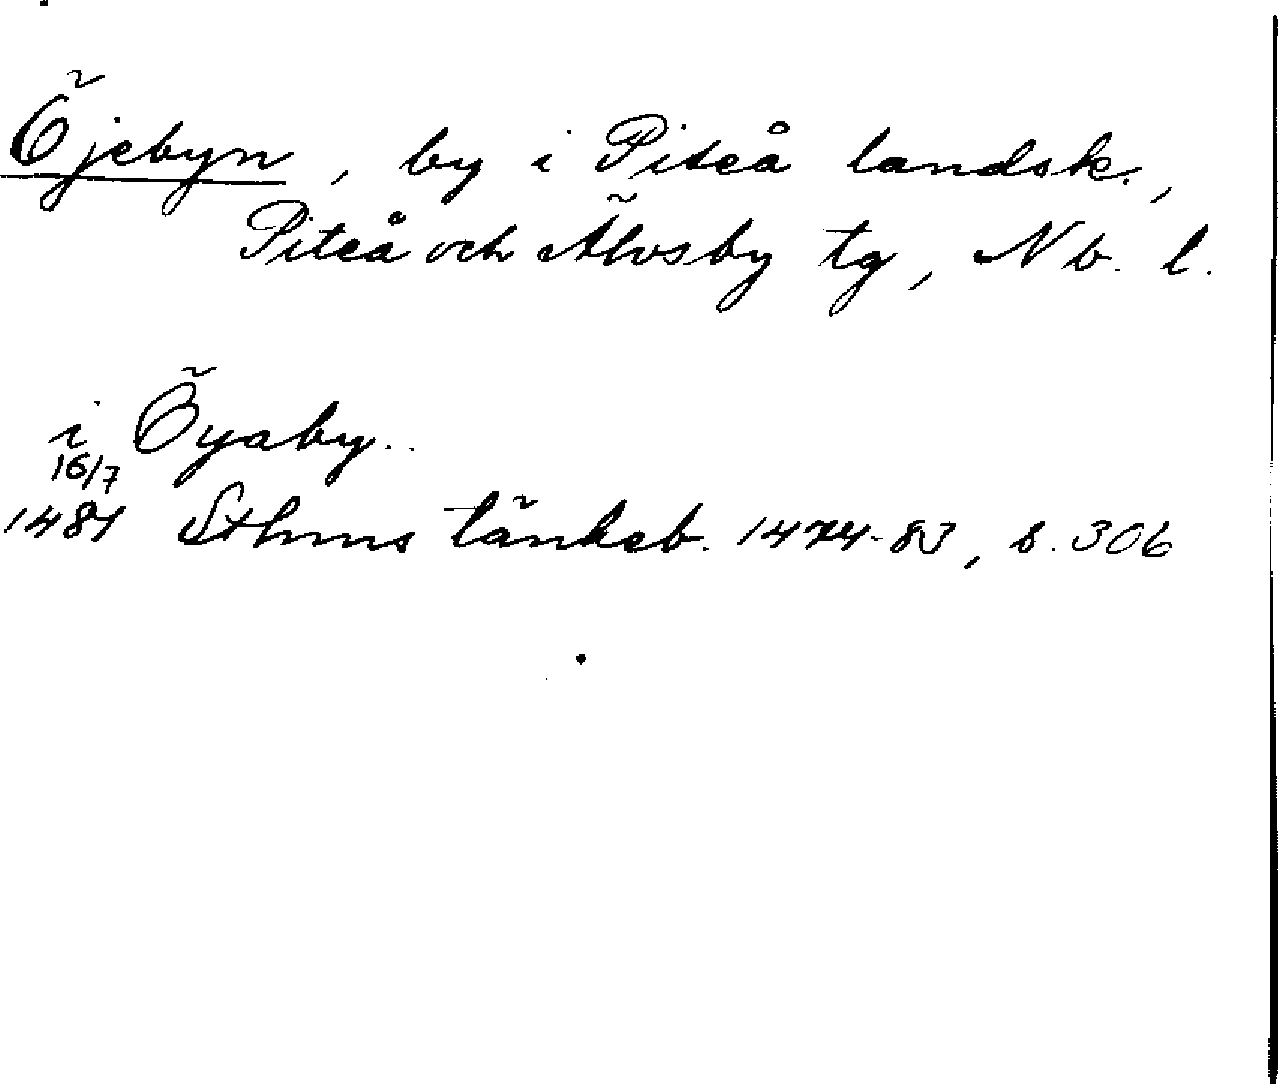 Öjebyn, by i Piteå landsk.,
Piteå och Älvsby tg, Nb. l.
i Öyaby..
16/7
1481 Sthms tänkeb. 1474-83, s. 306